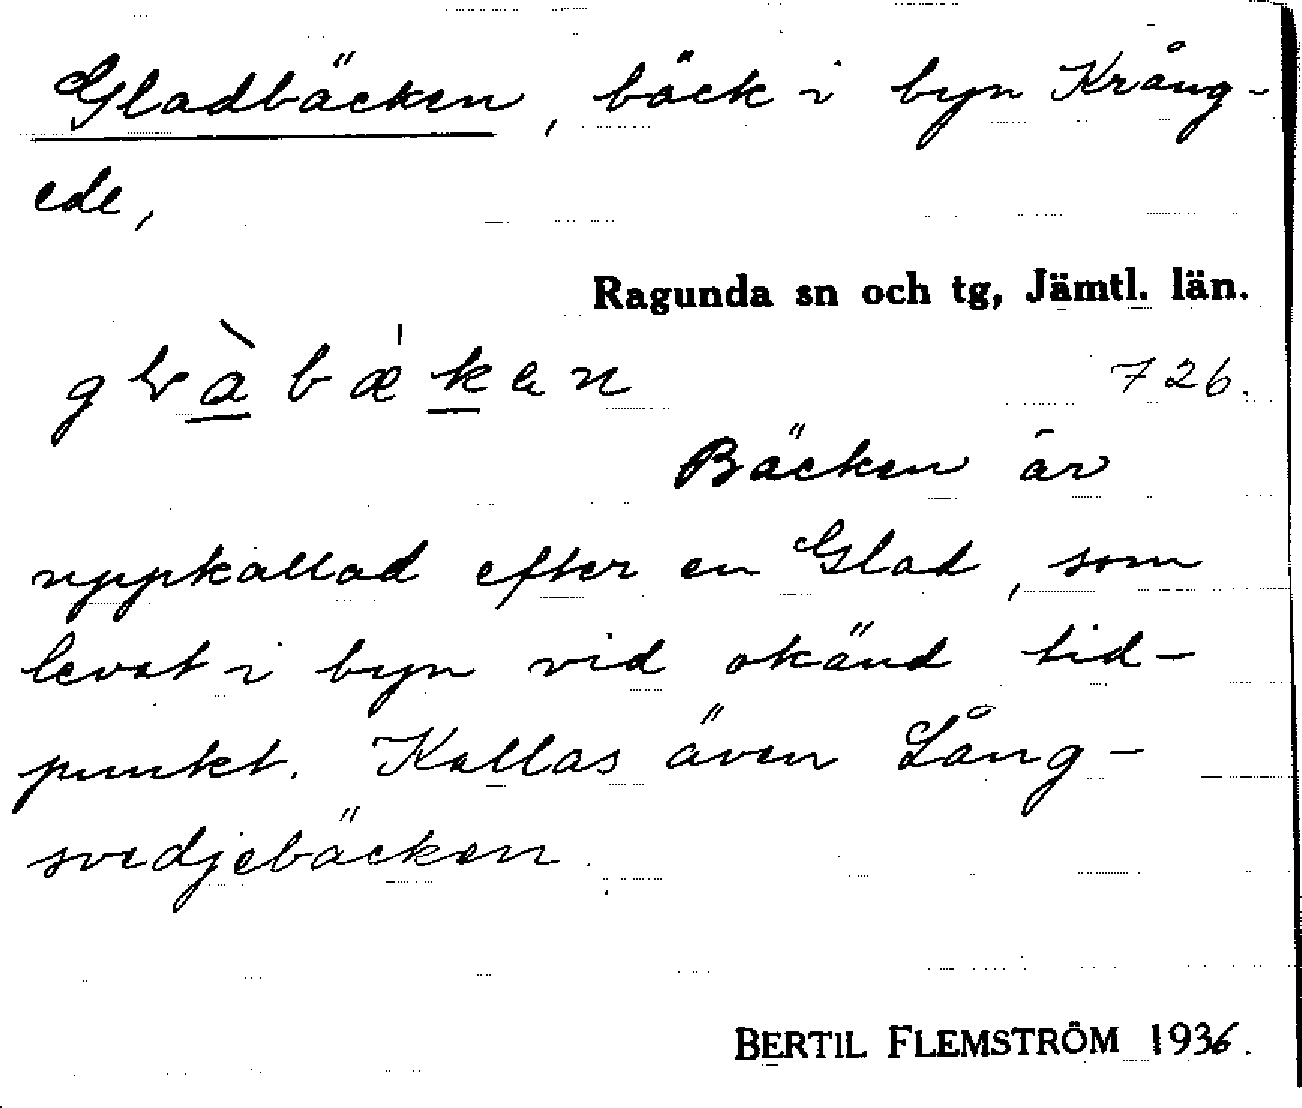 Gladbäcken, bäck i byn Krång-
ede,
Ragunda sn och tg, Jämtl. län.
726.
Bäcken är
uppkallad efter en Glad, som
levat i byn vid okänd tid-
punkt. Kallas även Lång-
svedjebäcken.
BERTIL FLEMSTRÖM 1936.